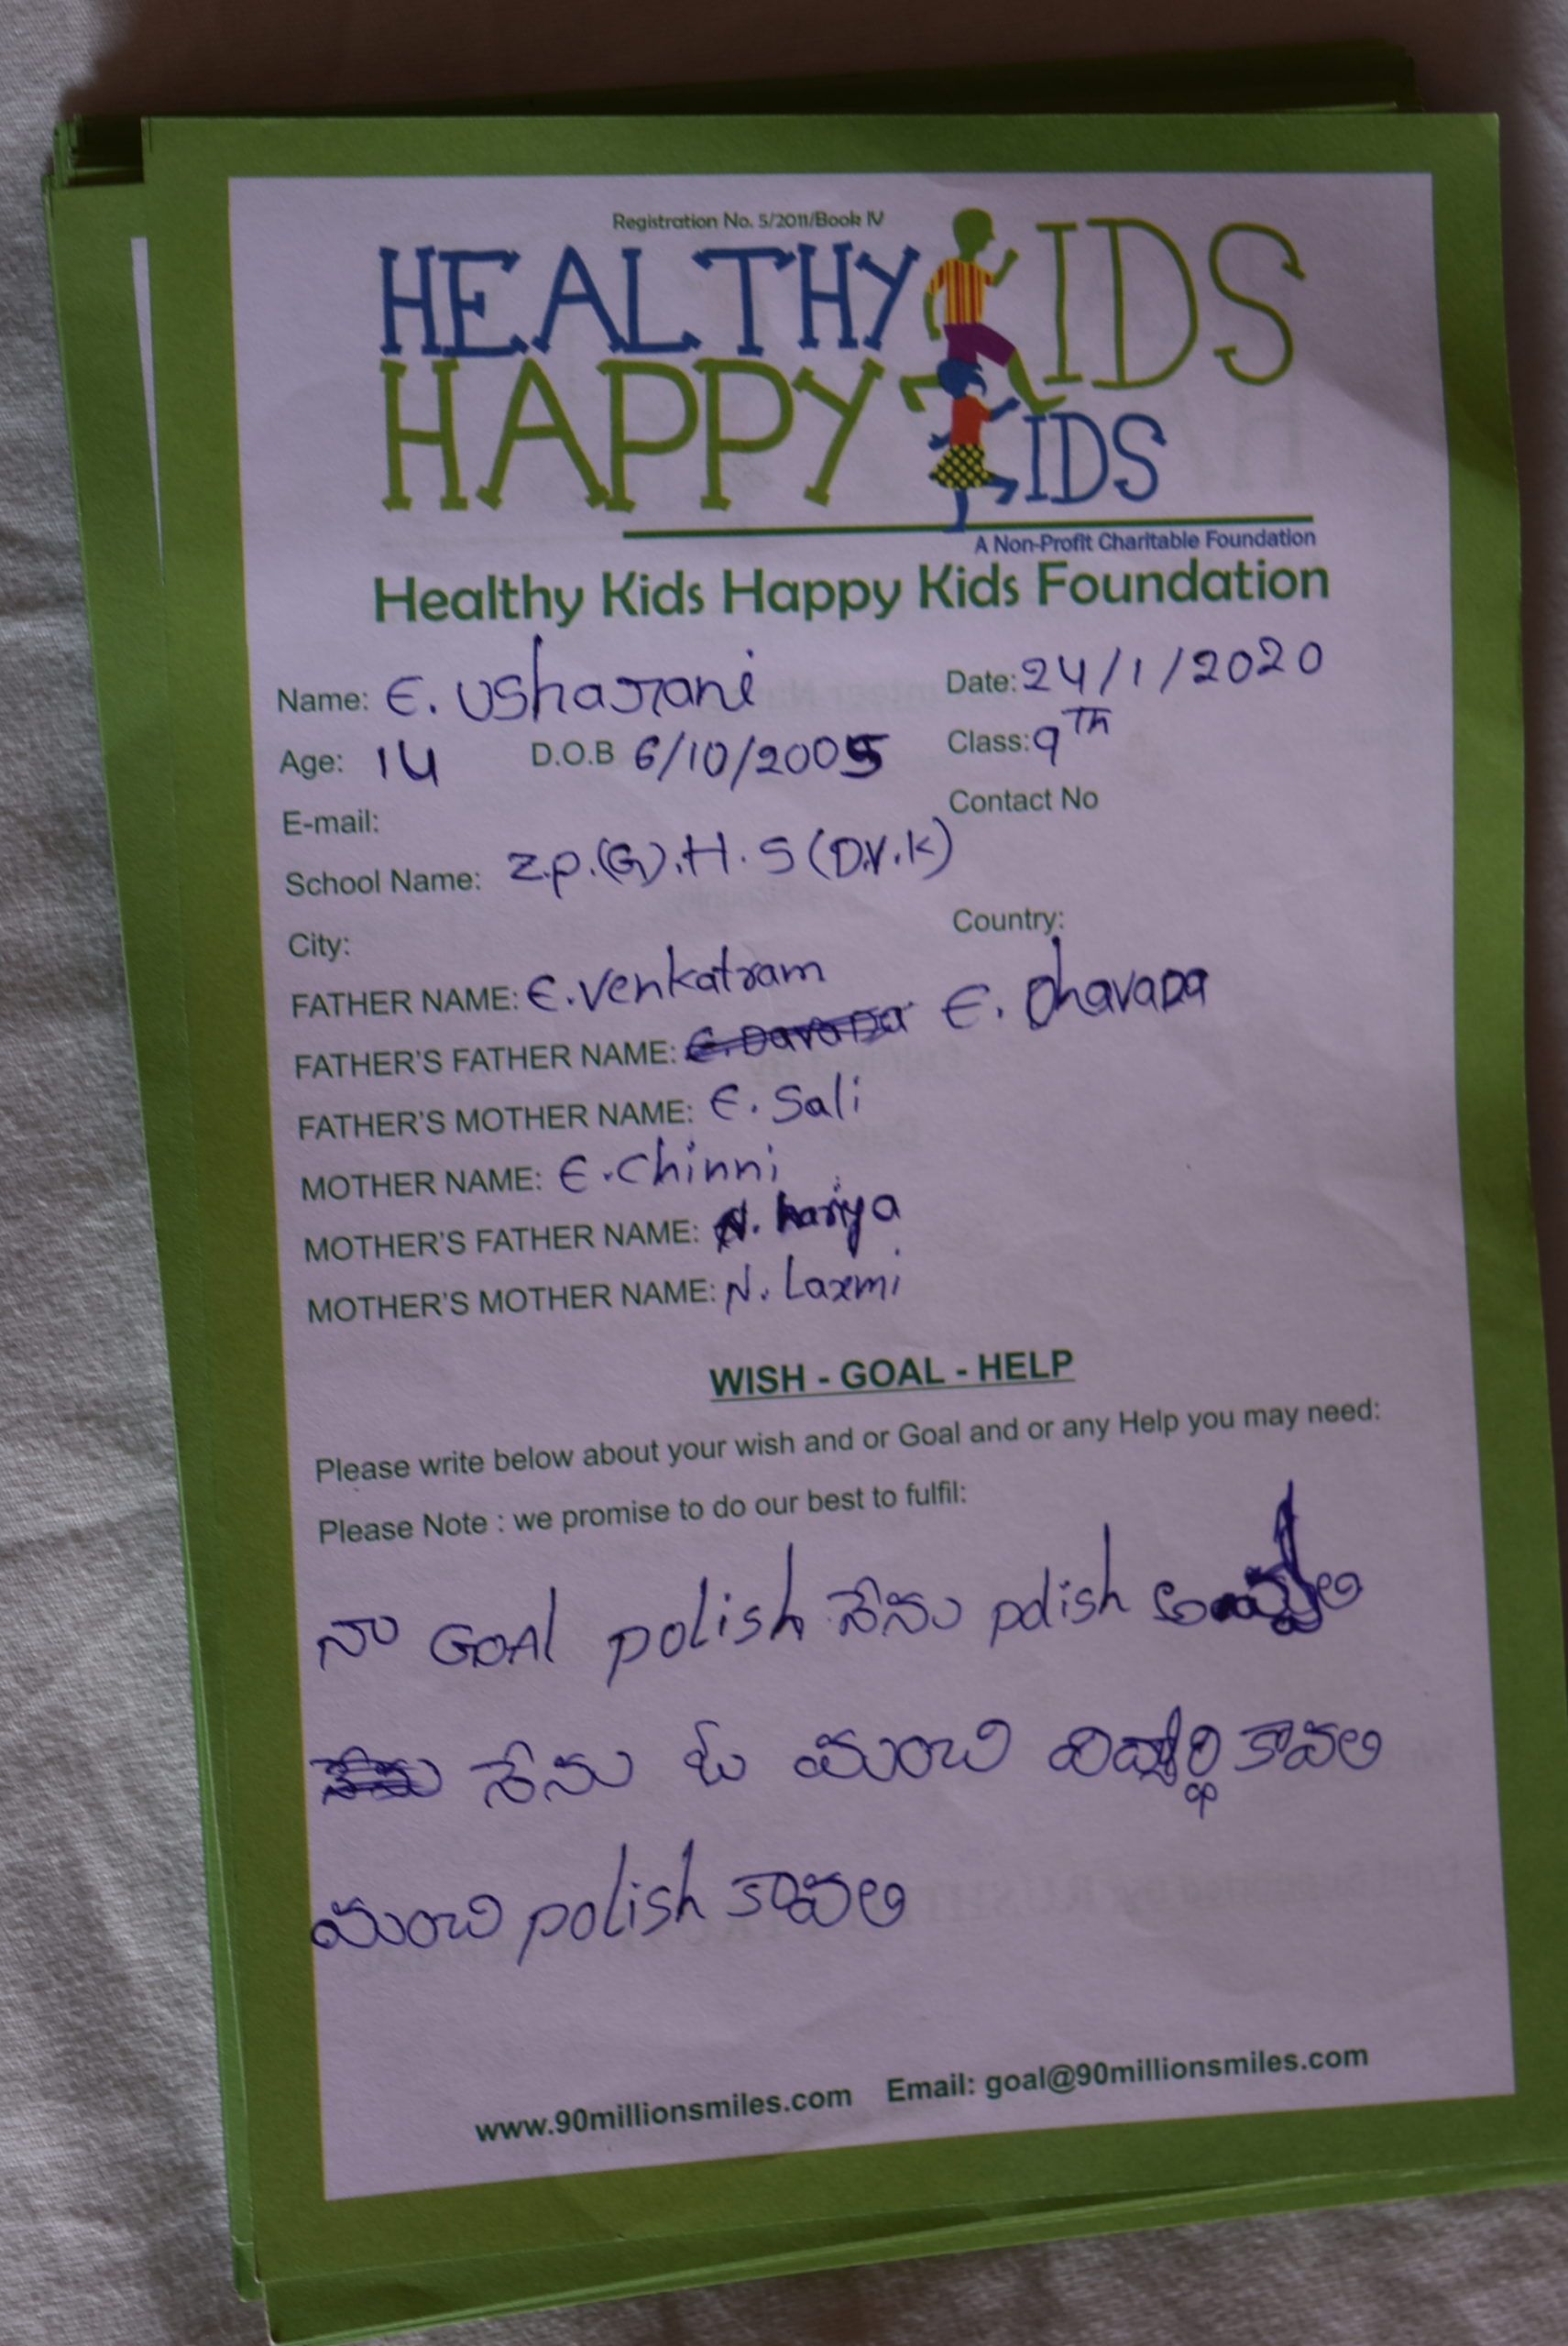 Registration No. 5/2011/Book IV
HEALTHY KIDS
HAPPY KIDS
A Non-Profit Charitable Foundation
Healthy Kids Happy Kids Foundation
Name: E. Usharani Date: 24/1/2020
Age: 14 D.O.B 6/10/2005 Class: 9TH
E-mail: Contact No
School Name: Z.P.(G).H.S (D.V.K)
City: Country:
FATHER NAME: E. Venkatram
FATHER'S FATHER NAME: E. Dhavada
FATHER'S MOTHER NAME: E. Sali
MOTHER NAME: E. Chinni
MOTHER'S FATHER NAME: N. hariya
MOTHER'S MOTHER NAME: N. Laxmi
WISH - GOAL - HELP
Please write below about your wish and or Goal and or any Help you may need:
Please Note : we promise to do our best to fulfil:
నా GOAl polish నేను polish
నేను ఓ మంచి విద్యార్థి కావలి
మంచి polish కావలి
www.90millionsmiles.com Email: goal@90millionsmiles.com